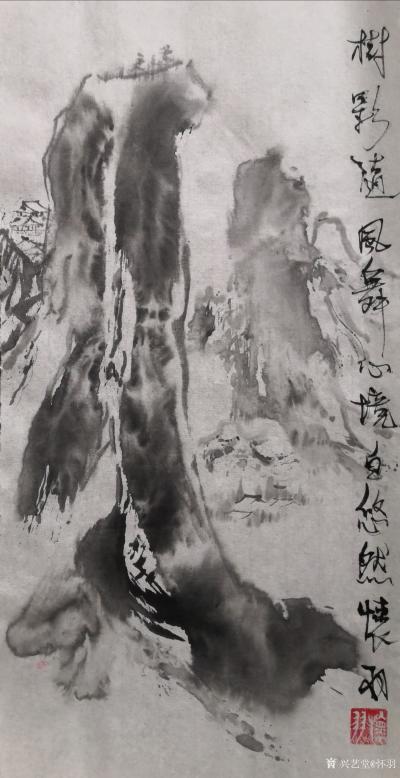 樹影随風舞心境自悠然懐羽
懷羽
兴艺堂@怀羽